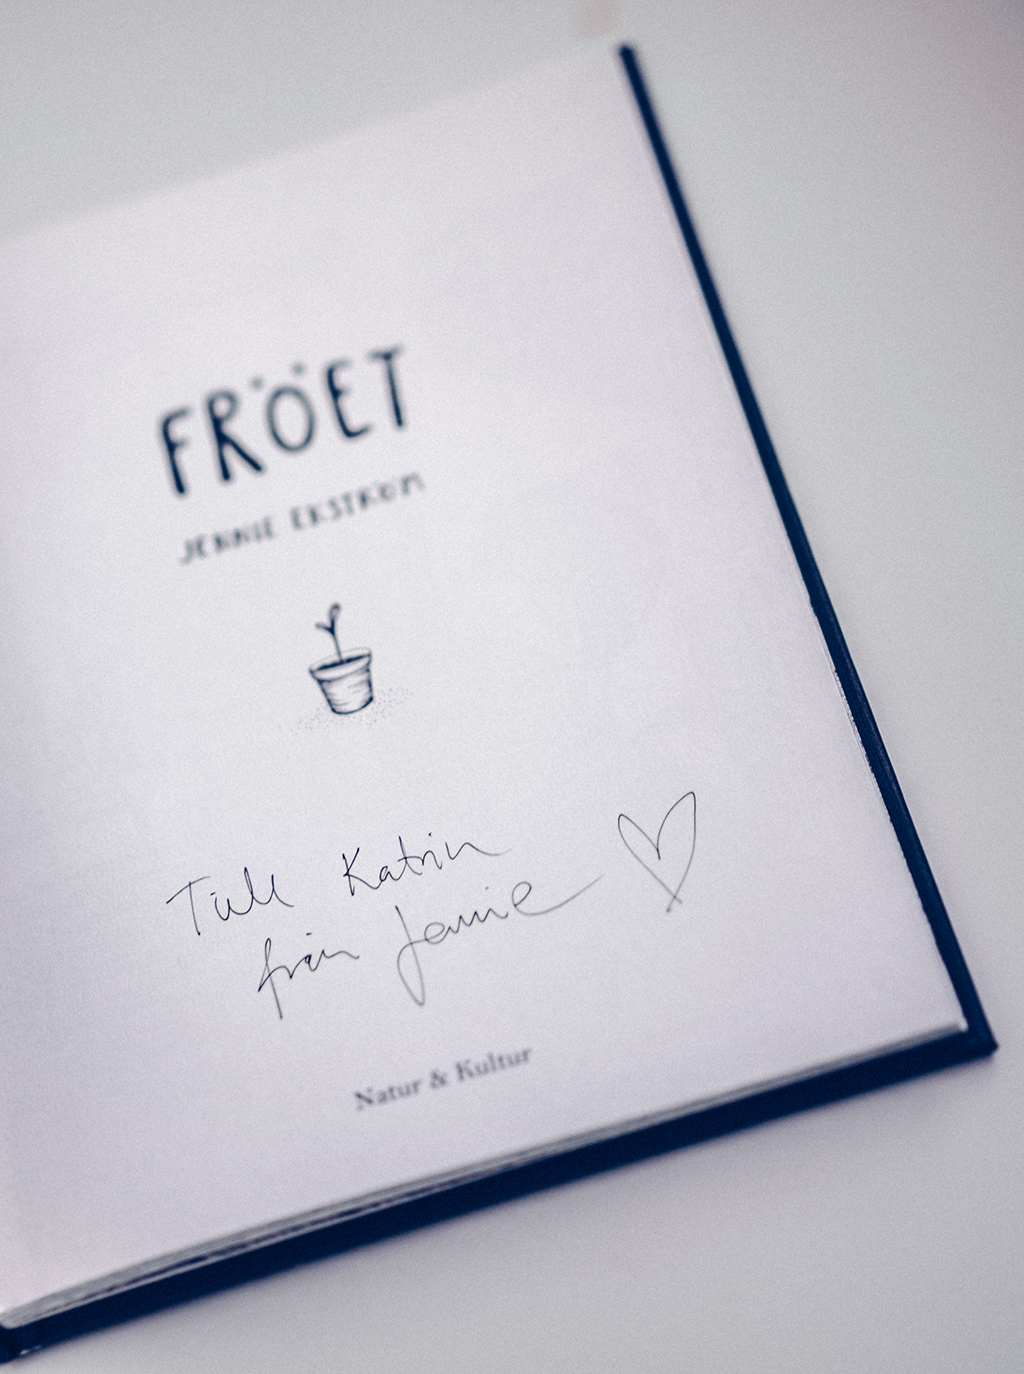 FRÖET
JENNIE EKSTRÖM
Till Katrin
från Jennie
Natur & Kultur